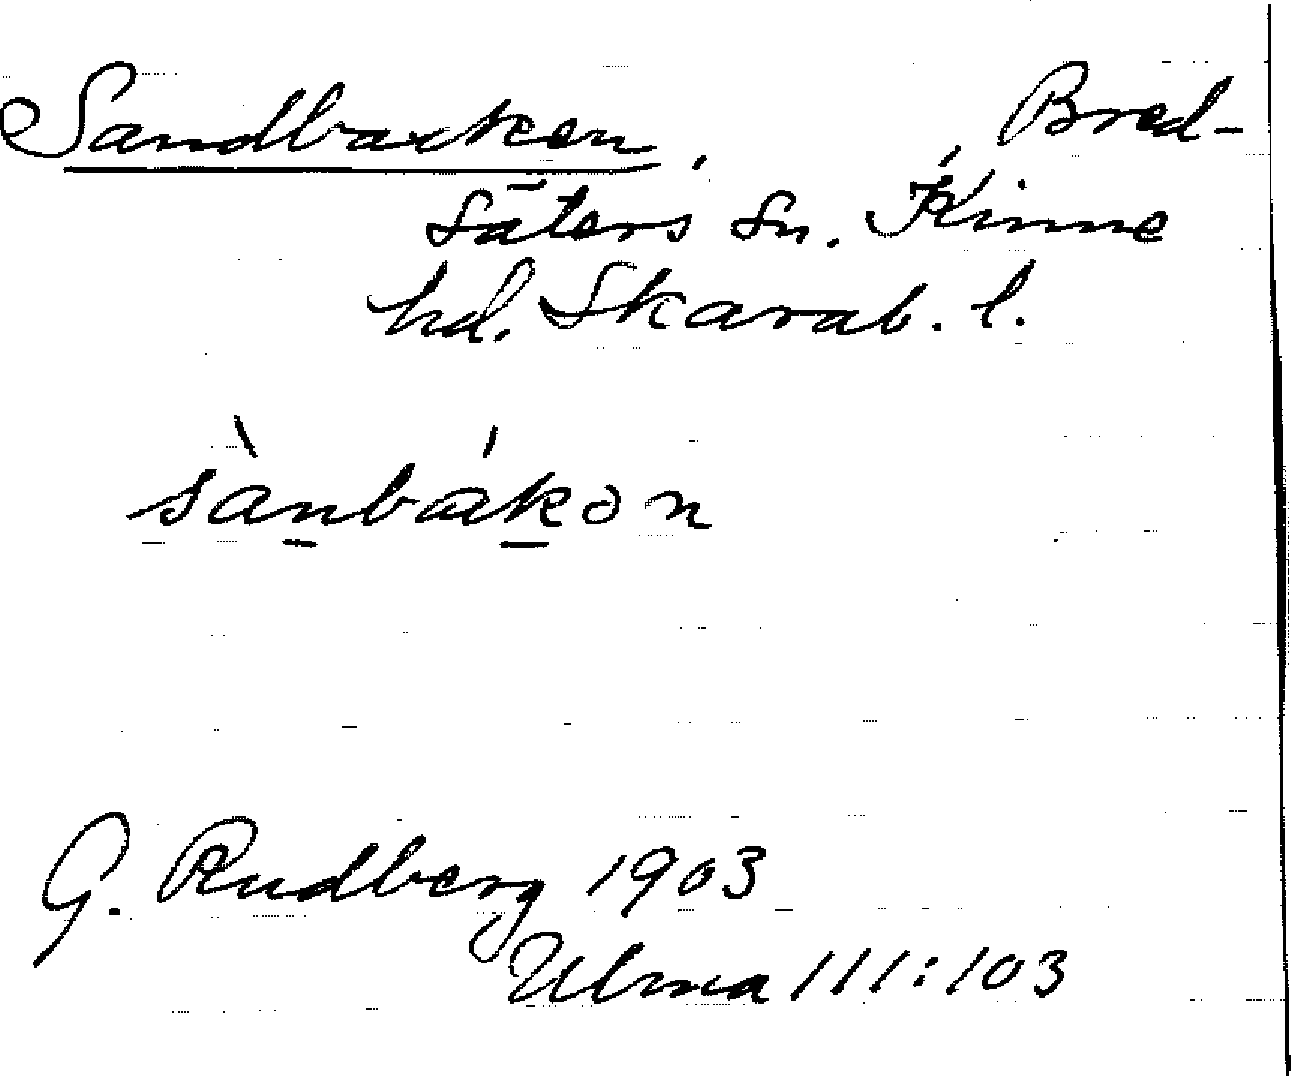 Sandbacken, Bred-
säters sn. Kinne
hd. Skarab. l.
sànbákən
G. Rudberg 1903
Ulma 111:103